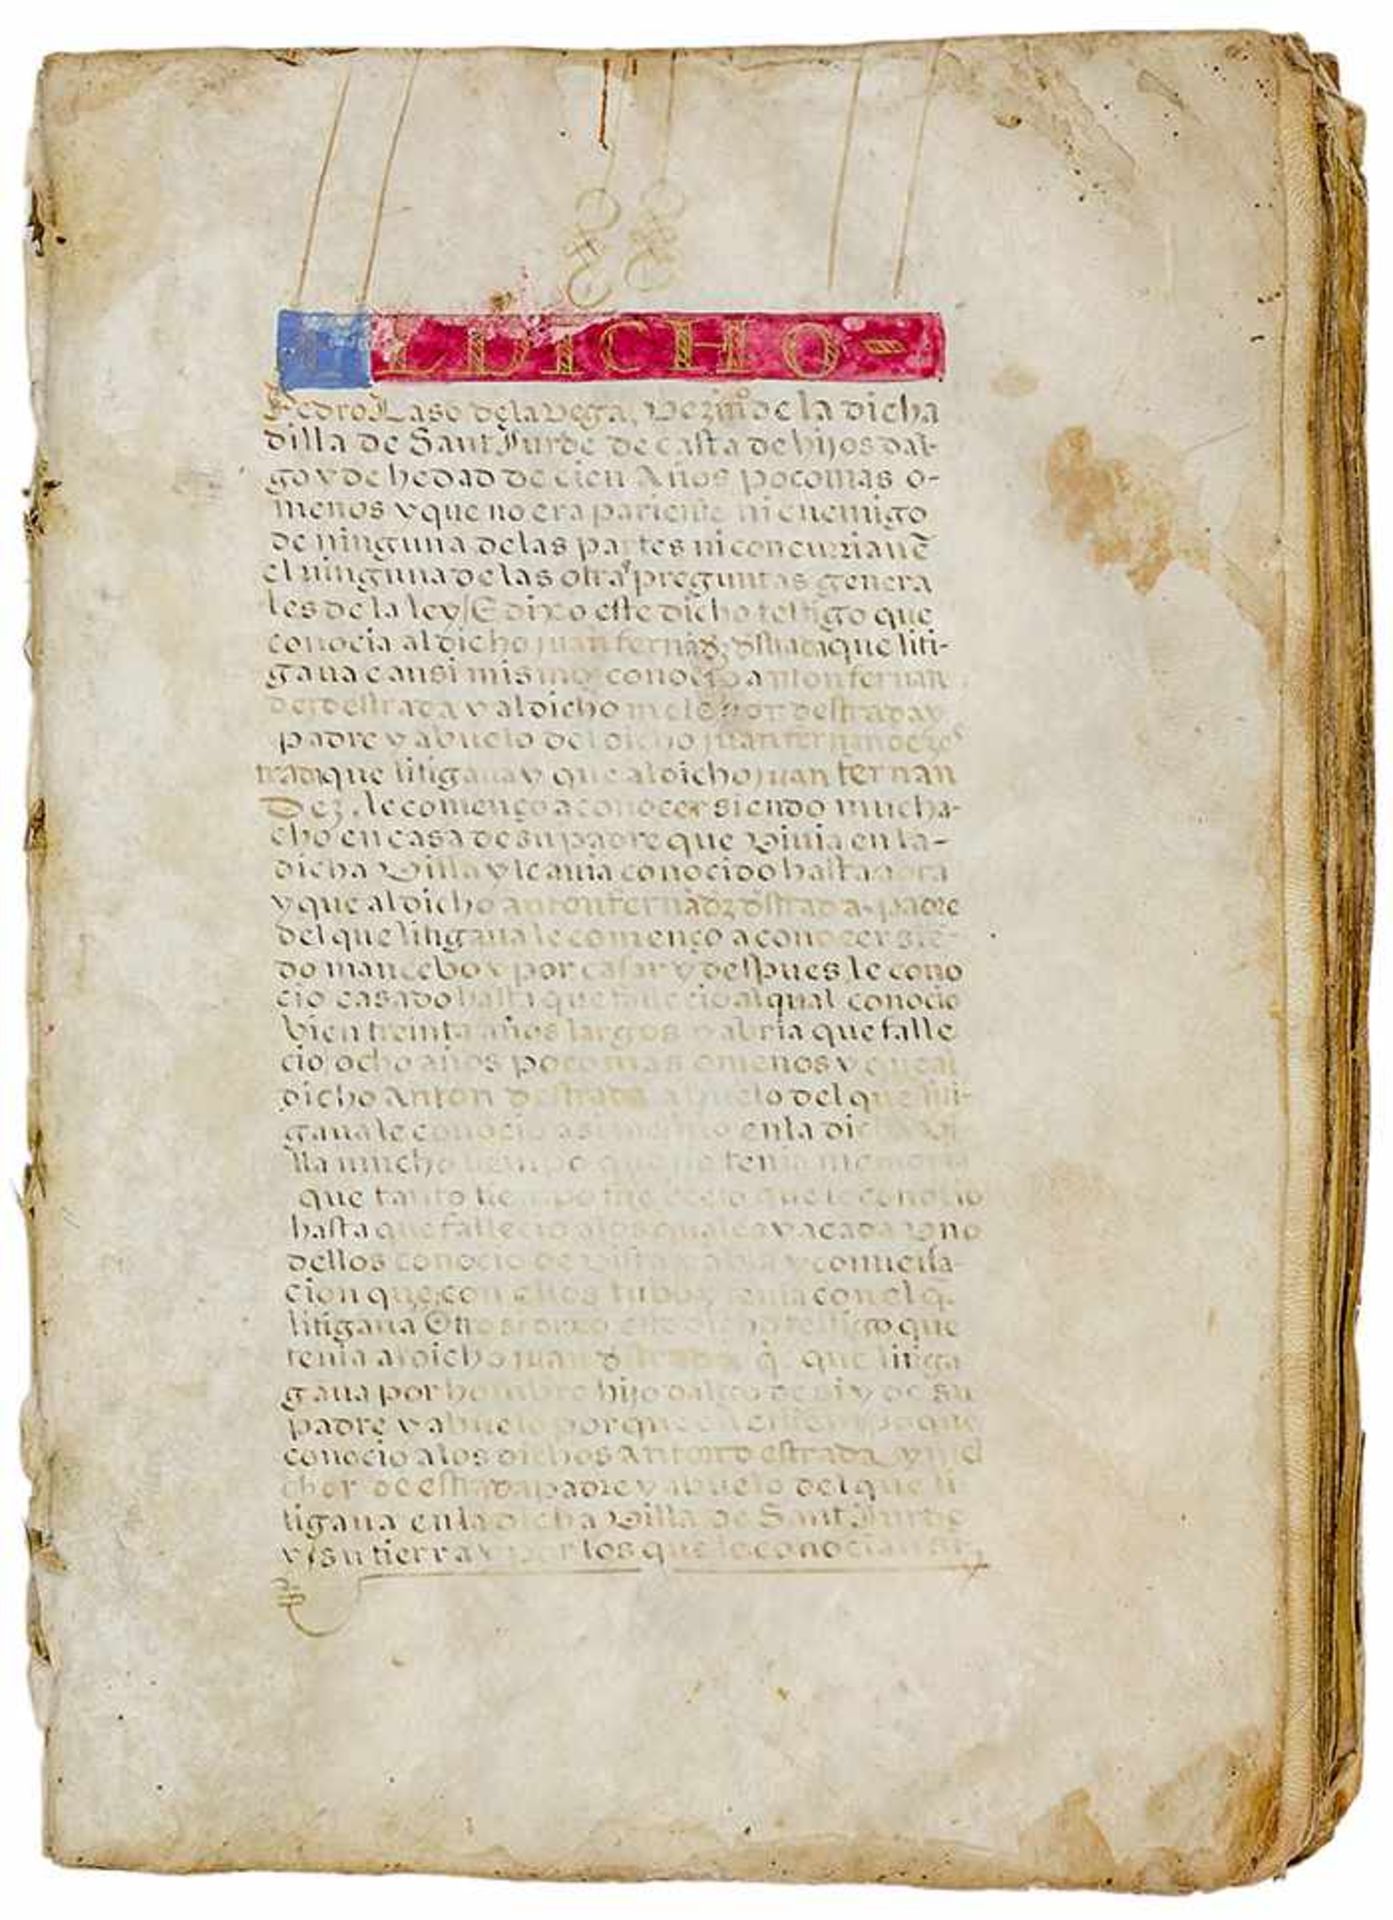 EL DICHO-
Pedro Laso dela vega, vezi͂o de la dicha
villa de Sant Jurde de casta de hijos dal-
go y de hedad de cien Años poco mas o-
menos y que no era pariente ni enemigo
de ninguna delas partes ni concurrian ẽ
el ninguna de las otras preguntas genera
les de la ley / E dixo este dicho testigo que
conocia al dicho juan que liti-
gaua e ansi mismo conocio a anton fernan
dez destrada y al dicho melchor destrada y
padre y abuelo del dicho juan fernandez
que litigaua y que al dicho juan fernan
Dez. le començo a conocer siendo mucha-
cho en casa de su padre que viuia en la-
dicha villa y le auia conocido hasta agora
y que al dicho anton padre
del que litigaua le començo a conocer siẽ-
do mancebo y por casar y despues le cono
cio casado hasta que fallecio al qual conocio
bien treinta años largos y abria que falle
cio ocho años poco mas o menos y que al
dicho Anton destrada abuelo del que liti-
gaua le conocio asimismo en la dicha vi-
lla mucho tiempo que no tenia memoria
que tanto tiempo fue que le conocio
hasta que fallecio a los quales y a cada vno
dellos conocio de vista y conuersa-
cion que con ellos tubo y tenia con el q̃
litigaua Otrosi dixo este dicho testigo que
tenia al dicho juan q̃ que litiga
gaua por hombre hijo dalgo de si y de su
padre y abuelo porque en el tiempo que
conocio a los dichos Anton d estrada y mel
chor de estrada padre y abuelo del que li
tigaua en la dicha villa de Sant Jurde
y su tierra y por los que le conocian